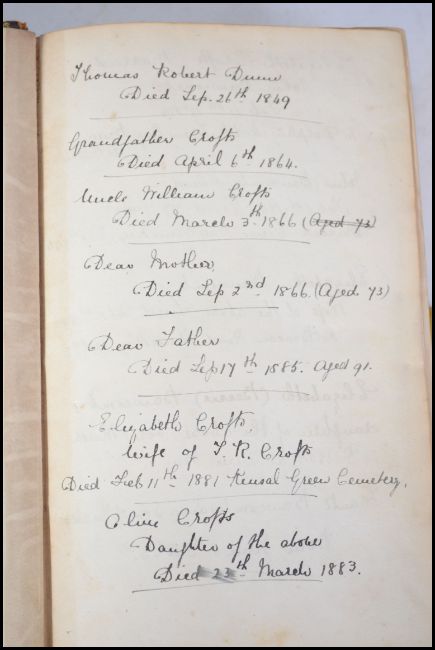 Thomas Robert Dunn
Died Sep. 26th 1849
Grandfather Crofts
Died April 6th 1864.
Uncle William Crofts
Died March 3th 1866 (Aged 73)
Dear Mother,
Died Sep 2nd 1866. (Aged 73)
Dear Father
Died Sep 17th 1885. Aged 91.
Elizabeth Crofts,
wife of T. R. Crofts
Died Feb 11th 1881 Kensal Green Cemetery.
Olive Crofts
Daughter of the above
Died 23th March 1883.